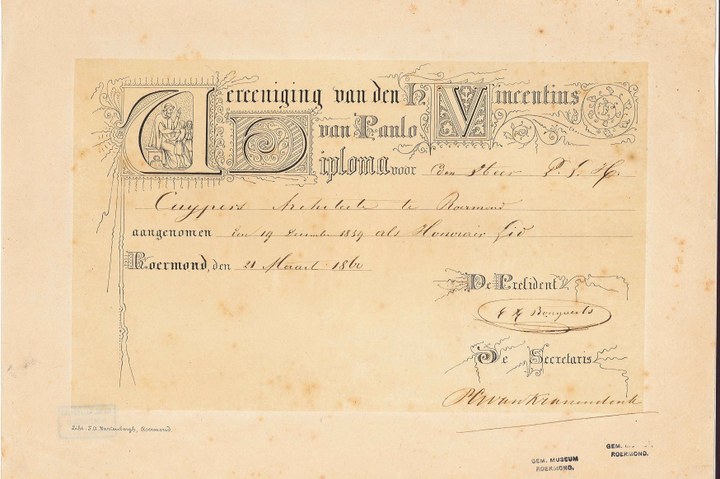 Vereeniging van den H. Vincentius
van Paulo
Diploma voor den Heer P. J. H.
Cuypers Architecte te Roermond
aangenomen den 19 December 1859 als Honorair Lid
Roermond, den 21 Maart 1860
De President
De Secretaris
Roermond.
GEM. MUSEUM
ROERMOND.
GEM.
ROERMOND.